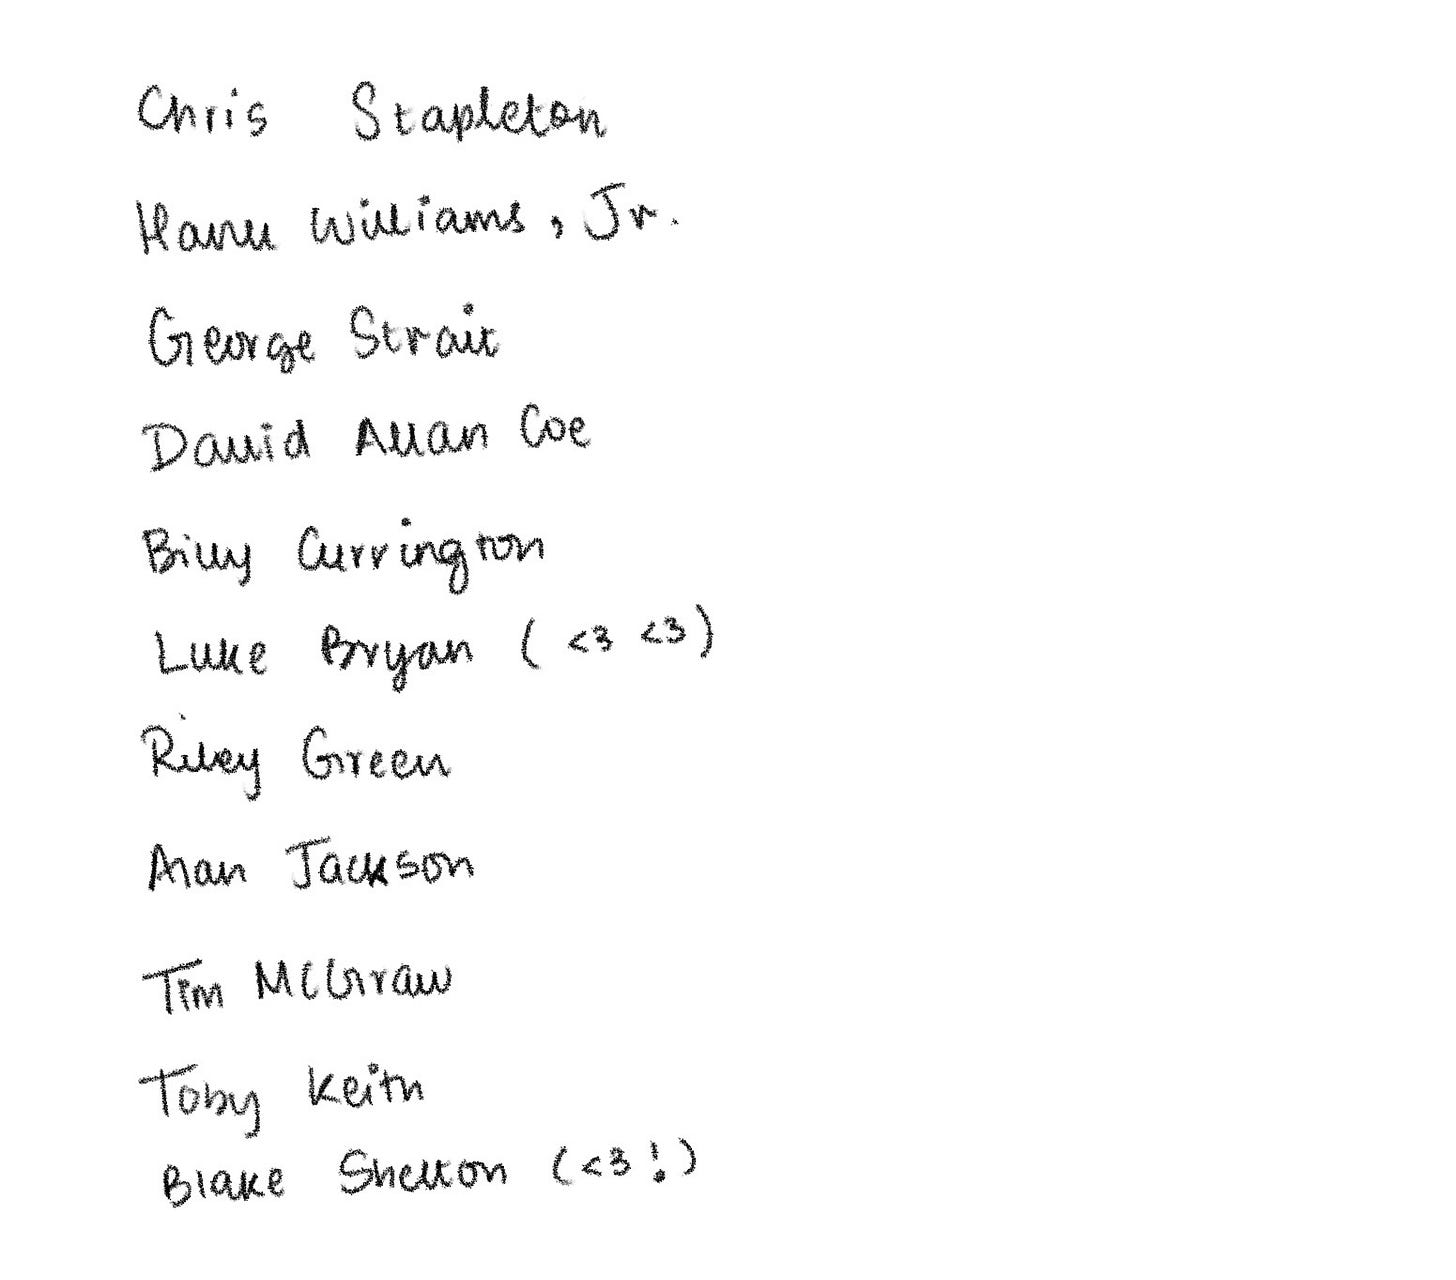 Chris Stapleton
Hank Williams, Jr.
George Strait
David Allan Coe
Billy Currington
Luke Bryan (<3 <3)
Riley Green
Alan Jackson
Tim McGraw
Toby Keith
Blake Shelton (<3!)